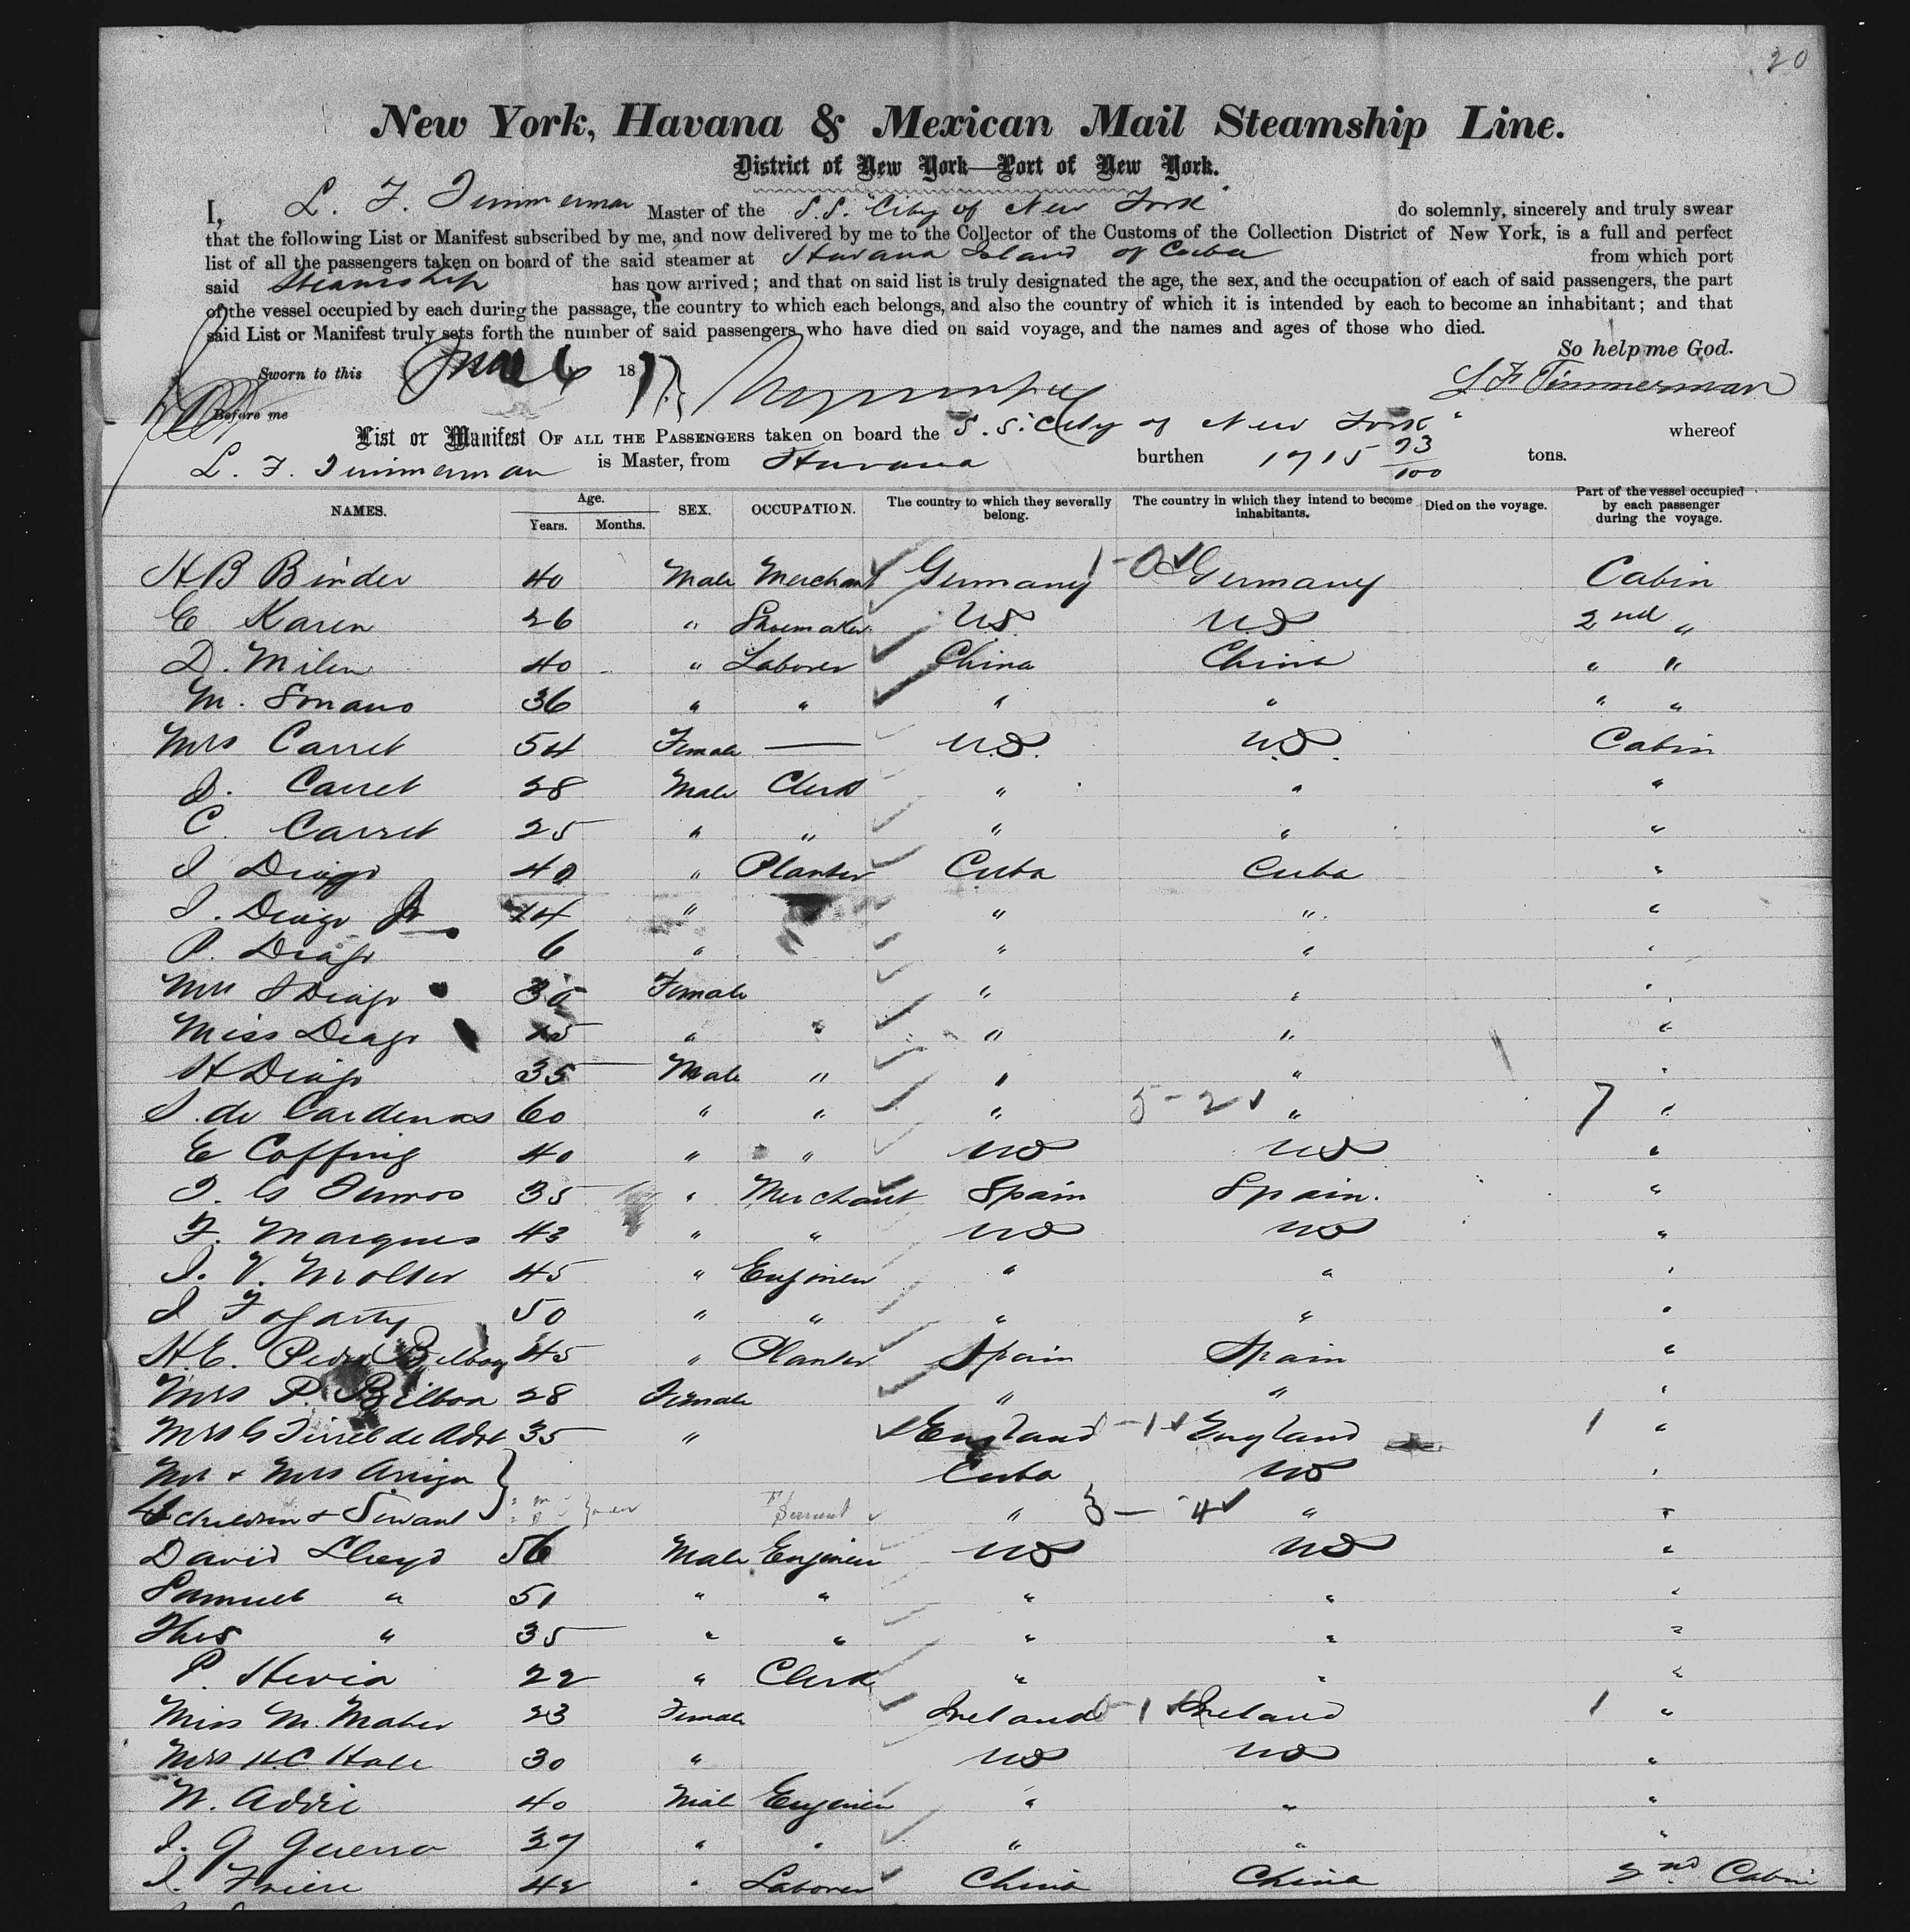 20
New York, Havana & Mexican Mail Steamship Line.
District of New York—Port of New York.
I, L. F. Timmerman Master of the S.S. "City of New York" do solemnly, sincerely and truly swear
that the following List or Manifest subscribed by me, and now delivered by me to the Collector of the Customs of the Collection District of New York, is a full and perfect
list of all the passengers taken on board of the said steamer at Havana Island of Cuba from which port
said Steamship has now arrived; and that on said list is truly designated the age, the sex, and the occupation of each of said passengers, the part
of the vessel occupied by each during the passage, the country to which each belongs, and also the country of which it is intended by each to become an inhabitant; and that
said List or Manifest truly sets forth the number of said passengers who have died on said voyage, and the names and ages of those who died.
So help me God.
Sworn to this June 6 187 L F Timmerman
Before me
List or Manifest OF ALL THE PASSENGERS taken on board the S.S. City of New York" whereof
L. F. Timmerman is Master, from Havana burthen 1715 23/100 tons.
NAMES. Age. Years. Months. SEX. OCCUPATION. The country to which they severally belong. The country in which they intend to become inhabitants. Died on the voyage. Part of the vessel occupied by each passenger during the voyage.
H B Binder 40 Male Merchant Germany 1-0 Germany Cabin
E Karen 26 " Shoemaker US US 2nd "
D. Milen 40 " Laborer China China " "
M. Sonano 36 " " " " " "
Mrs Carret 54 Female — U.S. U.S. Cabin
J. Carret 28 Male Clerk " " "
C. Carret 25 " " " " "
J Diago 40 " Planter Cuba Cuba "
J. Diago Jr 14 " " " "
P. Diago 6 " " " "
Mrs J Diago Female " " "
Miss Diago 15 " " " " "
H Diago 35 Male " " " "
J. de Cardenas 60 " " " 5-2 " 7 "
E Coffing 40 " " US US "
J. G 35 " Merchant Spain Spain. "
F. Marques 43 " " US US "
J. V. Molter 45 " Engineer " " "
J Fogarty 50 " " " " "
H.E. Pedro Bilboa 45 " Planter Spain Spain "
Mrs P. Bilboa 28 Female " " "
Mrs G de 35 " England -1 England 1 "
Mr & Mrs Cuba US "
4 children & Servant } Servant " 3 — 4 " "
David Lloyd 56 Male Engineer US US "
Samuel " 51 " " " " "
Thos " 35 " " " " "
P. Hevia 22 " Clerk " " "
Miss M. Maher 23 Female Ireland -1 Ireland 1 "
Mrs H.C. Hale 30 " US US "
W. Addie 40 Male Engineer " " "
J. G Guerra 37 " " " " "
J. Friere 42 " Laborer China China 2nd Cabin